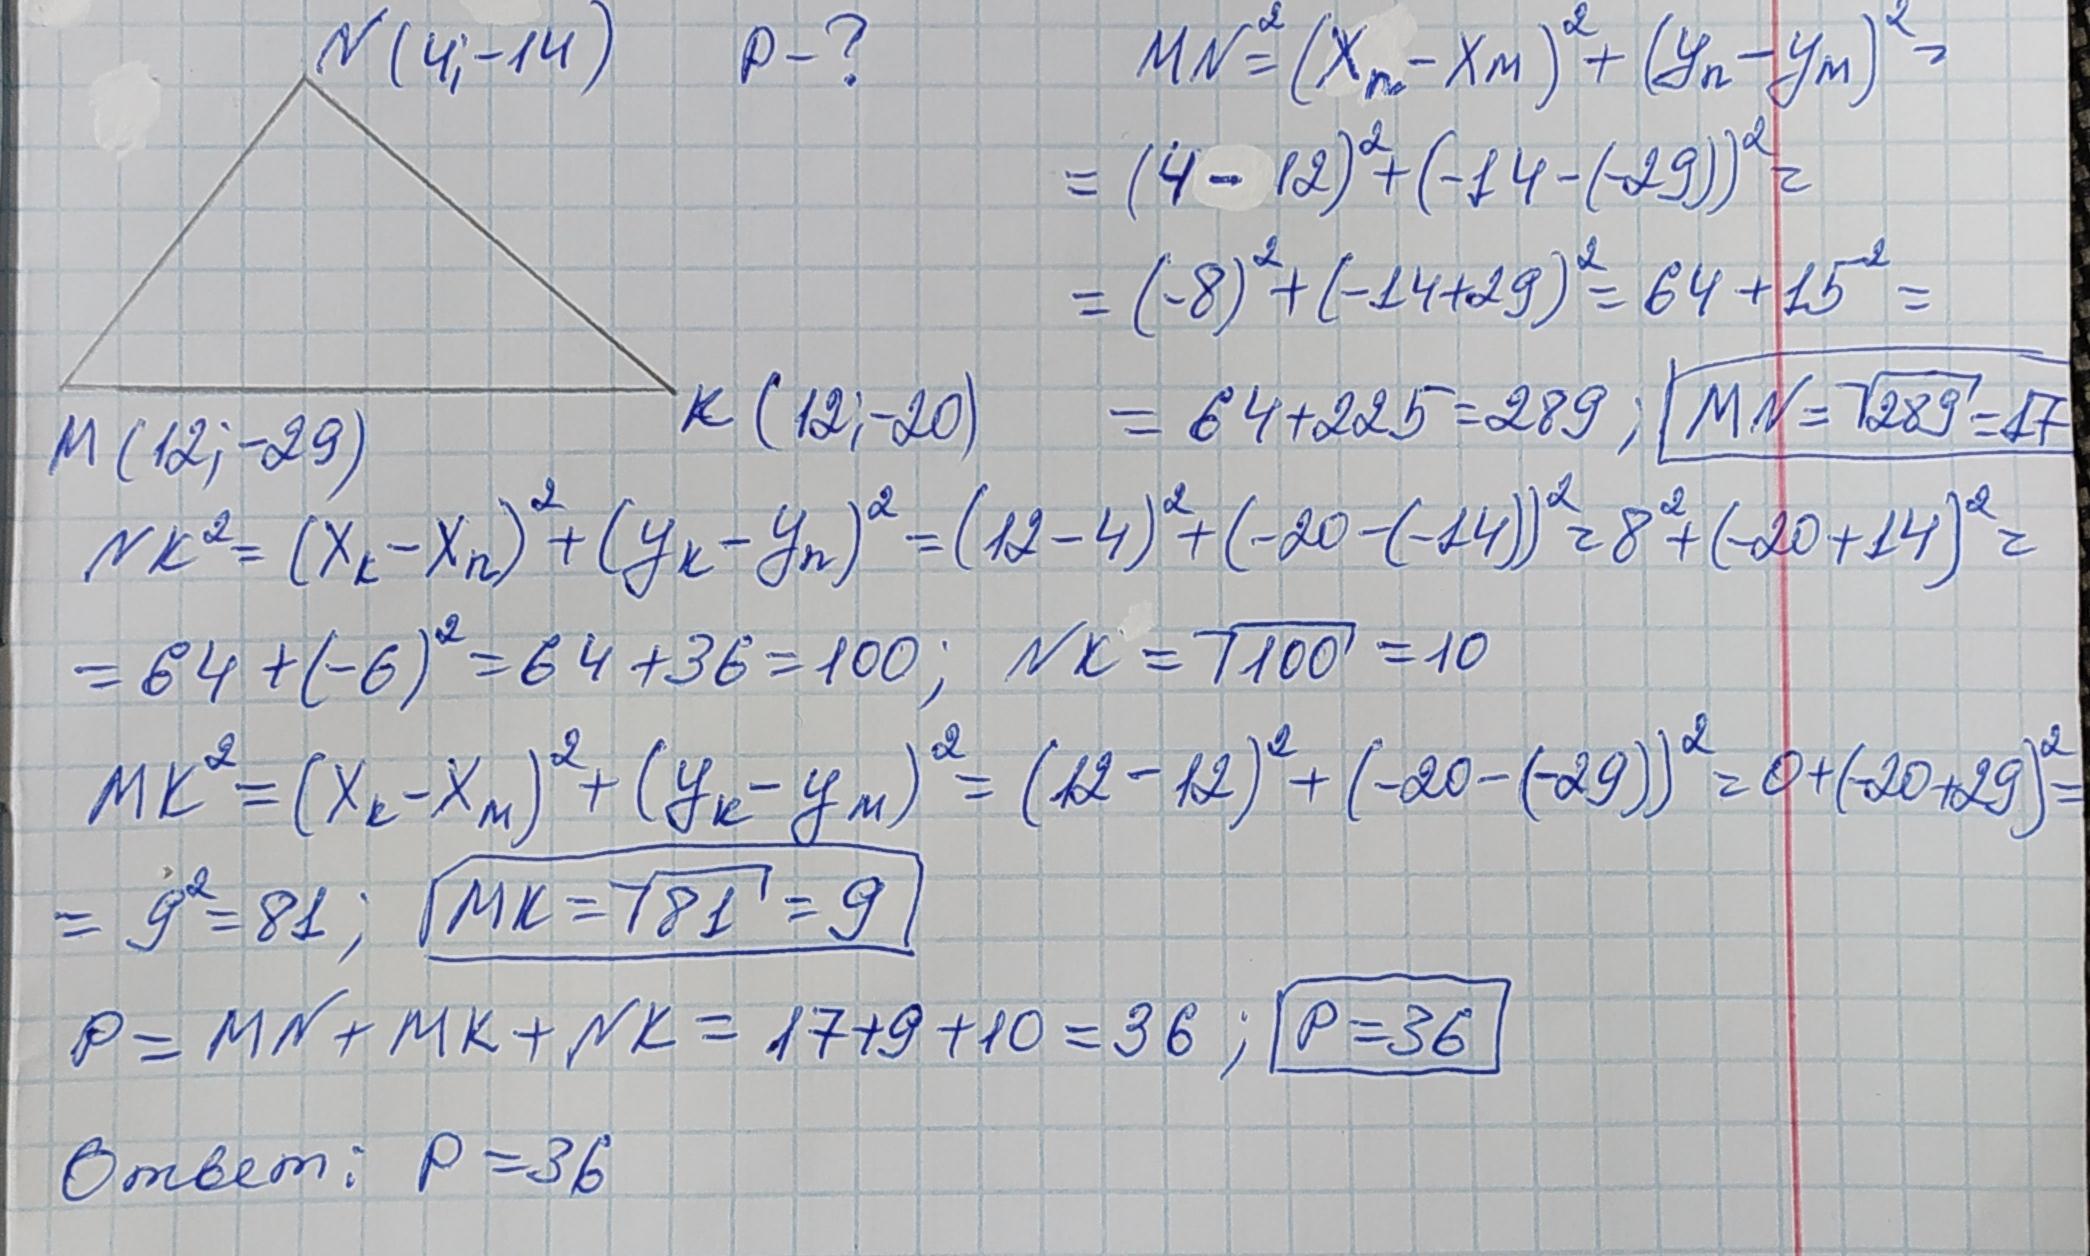 N (4;-14) P-? MN²=(Xₙ-Xм)²+(yₙ-yм)²=
=(4-12)²+(-14-(-29))²=
=(-8)²+(-14+29)²=64+15²=
M (12;-29) K (12;-20) =64+225=289; MN=√289=17
NK²=(Xₖ-Xₙ)²+(yₖ-yₙ)²=(12-4)²+(-20-(-14))²=8²+(-20+14)²=
=64+(-6)²=64+36=100; NK=√100=10
MK²=(Xₖ-Xм)²+(yₖ-yм)²=(12-12)²+(-20-(-29))²=0+(-20+29)²=
=9²=81; MK=√81=9
P=MN+MK+NK=17+9+10=36; P=36
Ответ: P=36